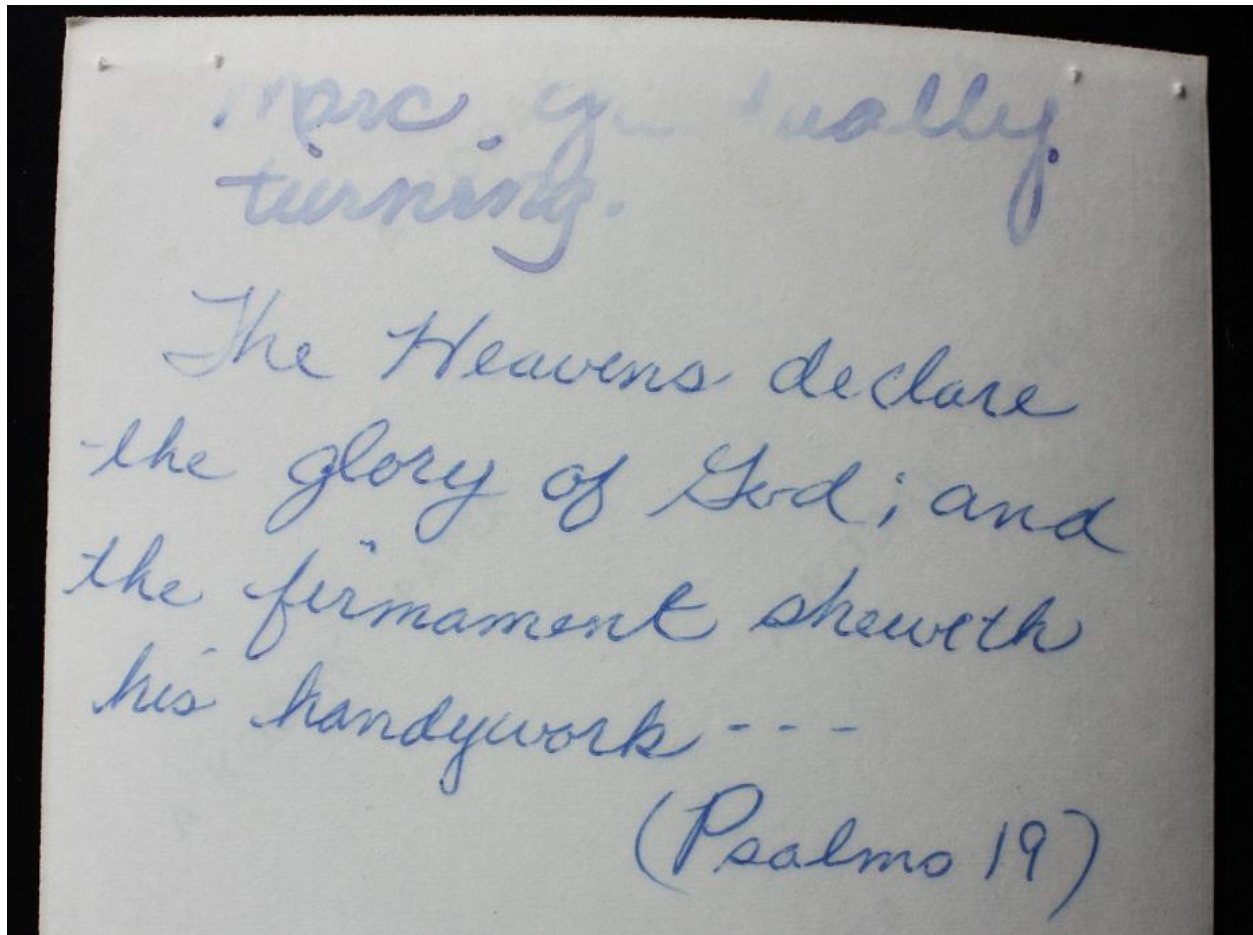 turning.
The Heavens declare
the glory of God; and
the firmament sheweth
his handywork - - -
(Psalms 19)